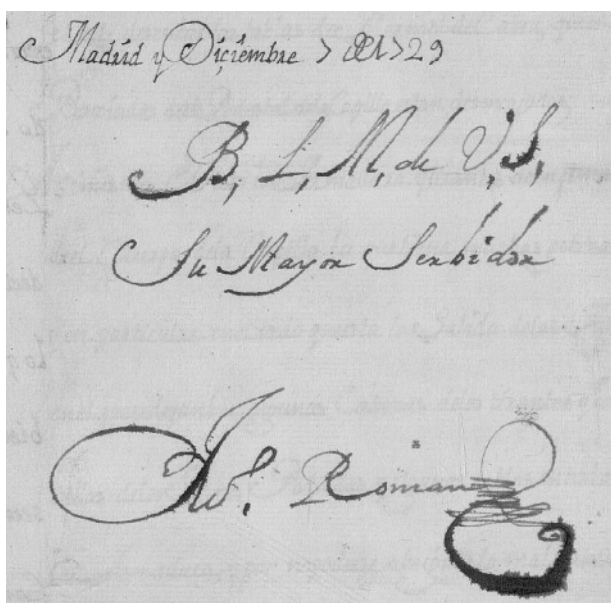 Madrid y Diçiembre 7 de 1729
B, L, M, de V, S,
Su Mayor Serbidor
Roman